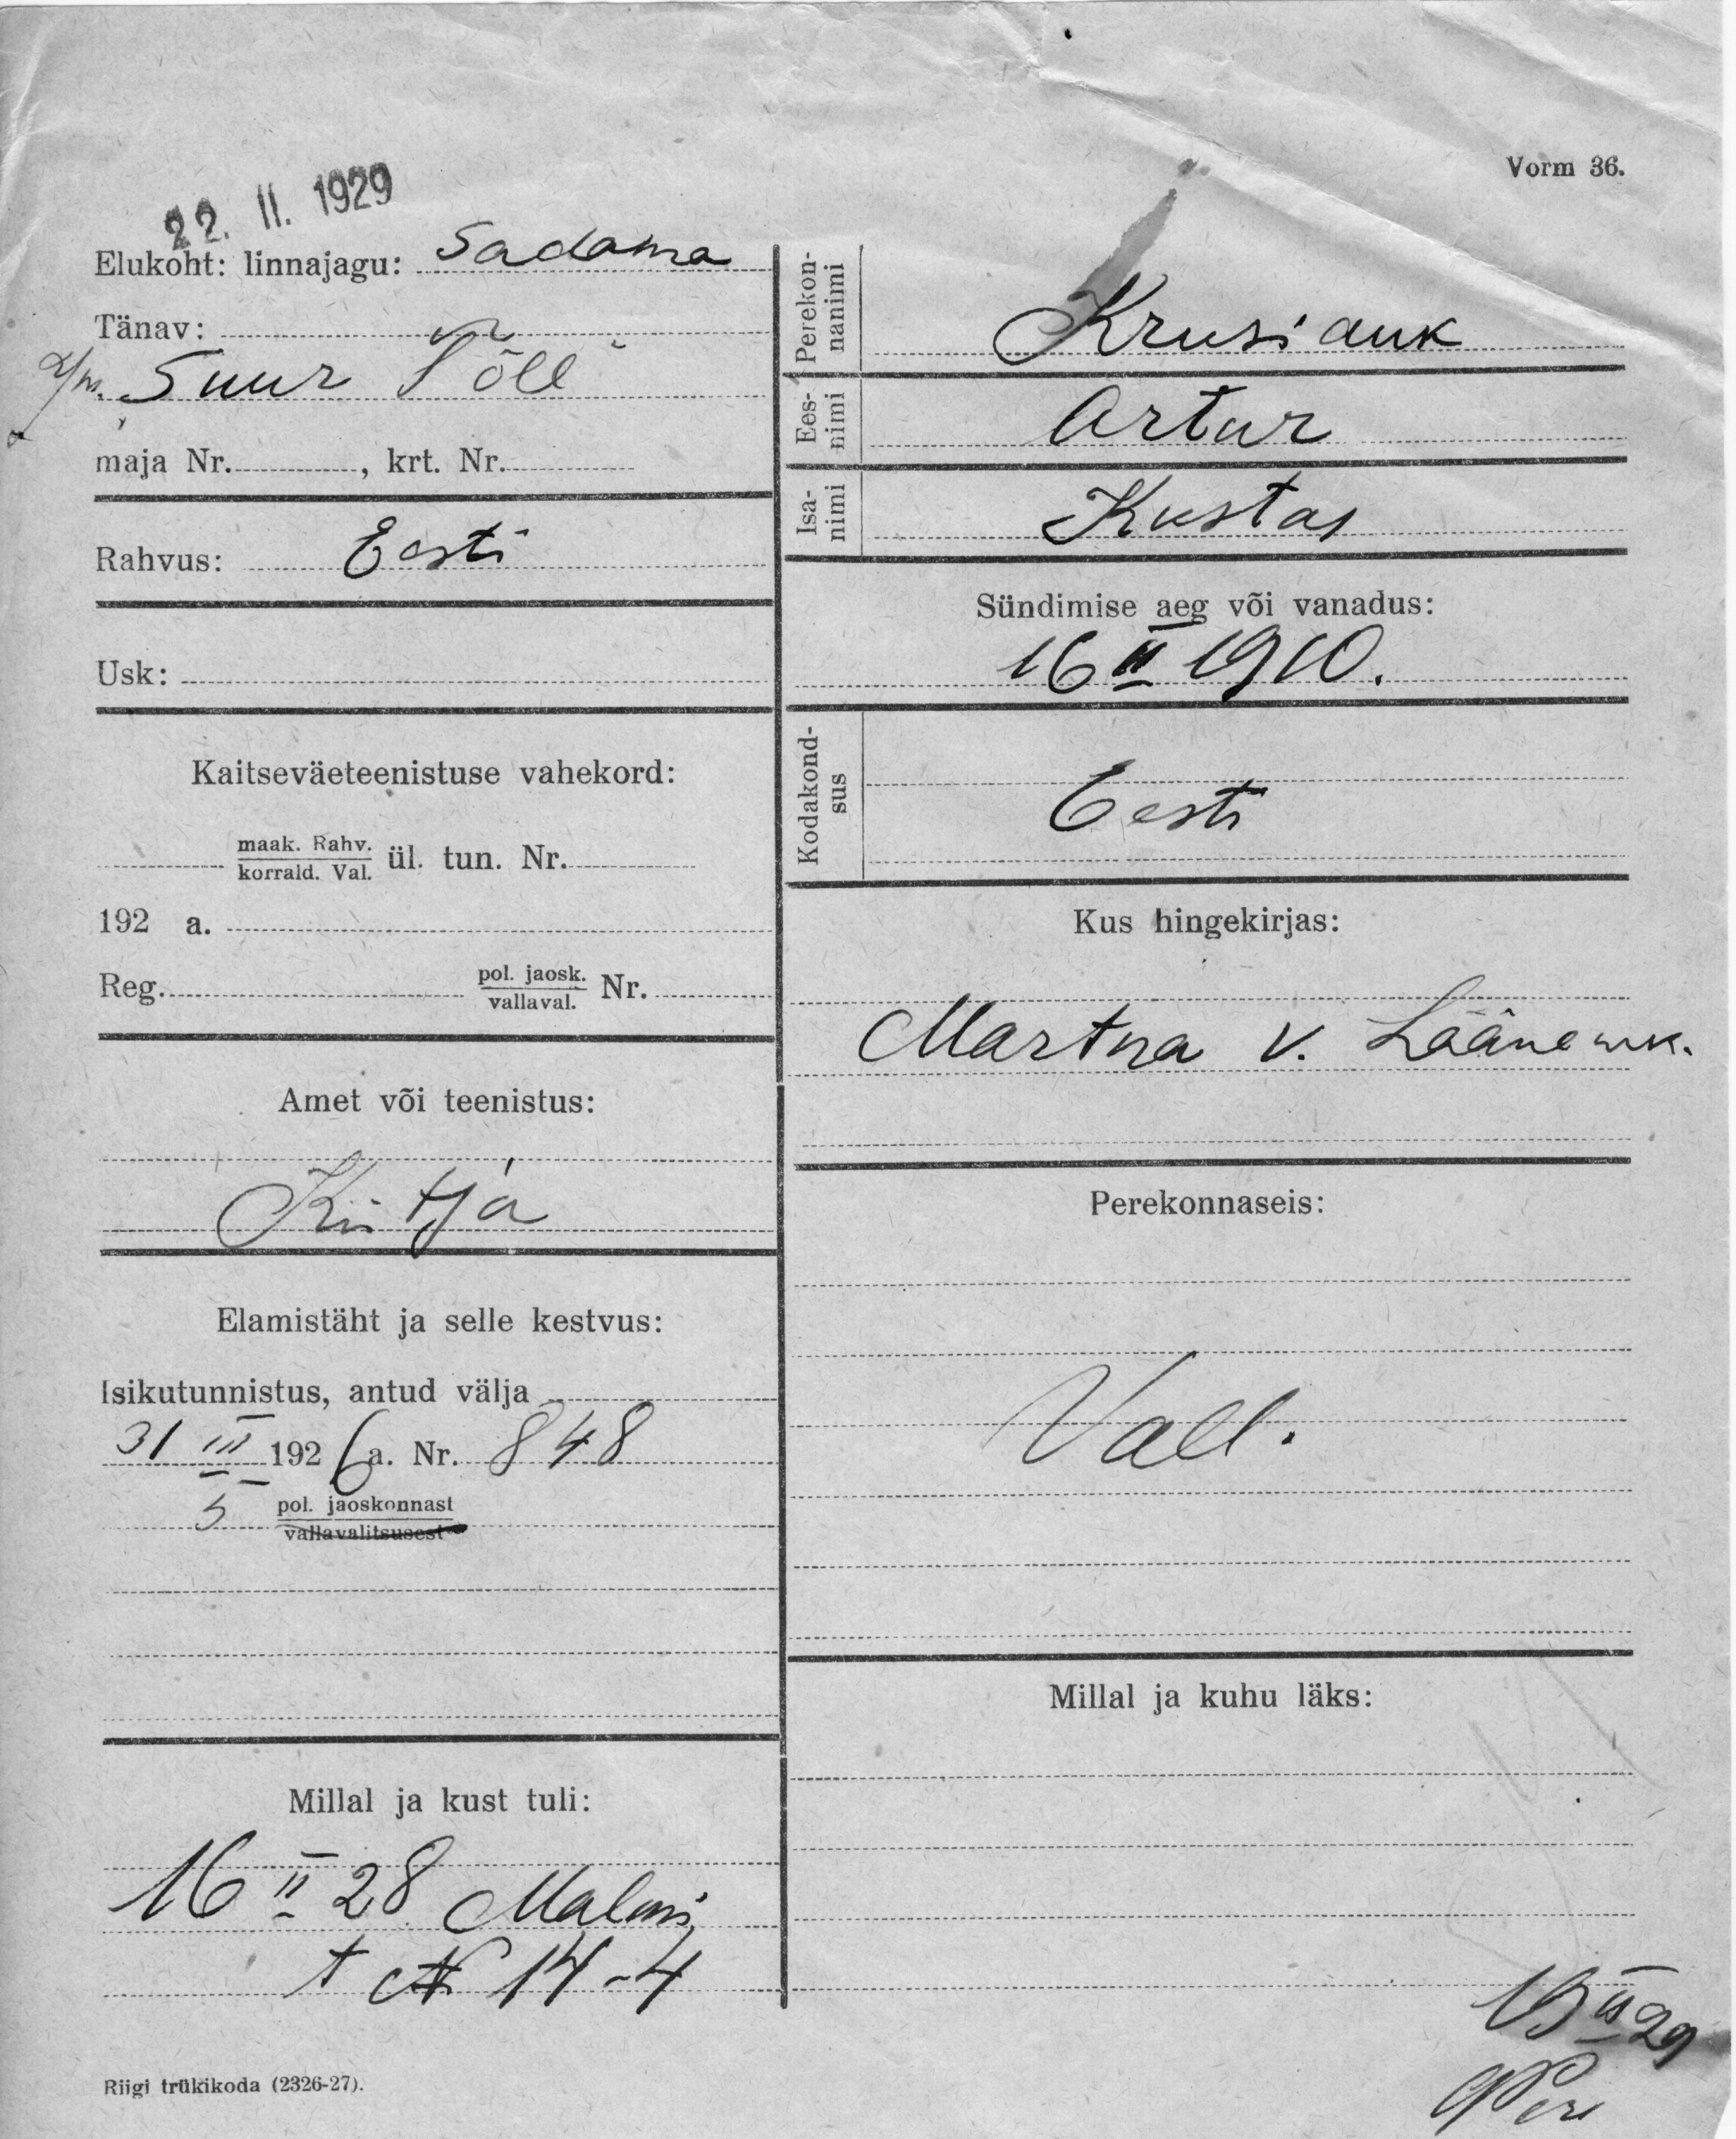 Vorm 36.
22. II. 1929
Elukoht: linnajagu: Sadama
Tänav:
a/m. Suur Tõll
maja Nr. , krt. Nr.
Rahvus: Eesti
Usk:
Kaitseväeteenistuse vahekord:
maak. Rahv.
korrald. Val. ül. tun. Nr.
192 a.
Reg. pol. jaosk.
vallaval. Nr.
Amet või teenistus:
Kütja
Elamistäht ja selle kestvus:
Isikutunnistus, antud välja
31 III 1926 a. Nr. 848
5 pol. jaoskonnast
vallavalitsusest
Millal ja kust tuli:
16 II 28 Malmi
t № 14-4
Riigi trükikoda (2326-27).
Perekon-
nanimi
Krusiauk
Ees-
nimi
Artur
Isa-
nimi
Kustas
Sündimise aeg või vanadus:
16 II 1910.
Kodakond-
sus
Eesti
Kus hingekirjas:
Martna v. Läänemk.
Perekonnaseis:
Vall.
Millal ja kuhu läks:
19 II 29